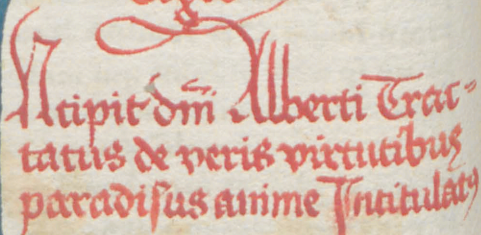 Ntipit dm̄i Alberti Trac-
tatus de veris virtutibus
paradisus anime Intitulatꝰ